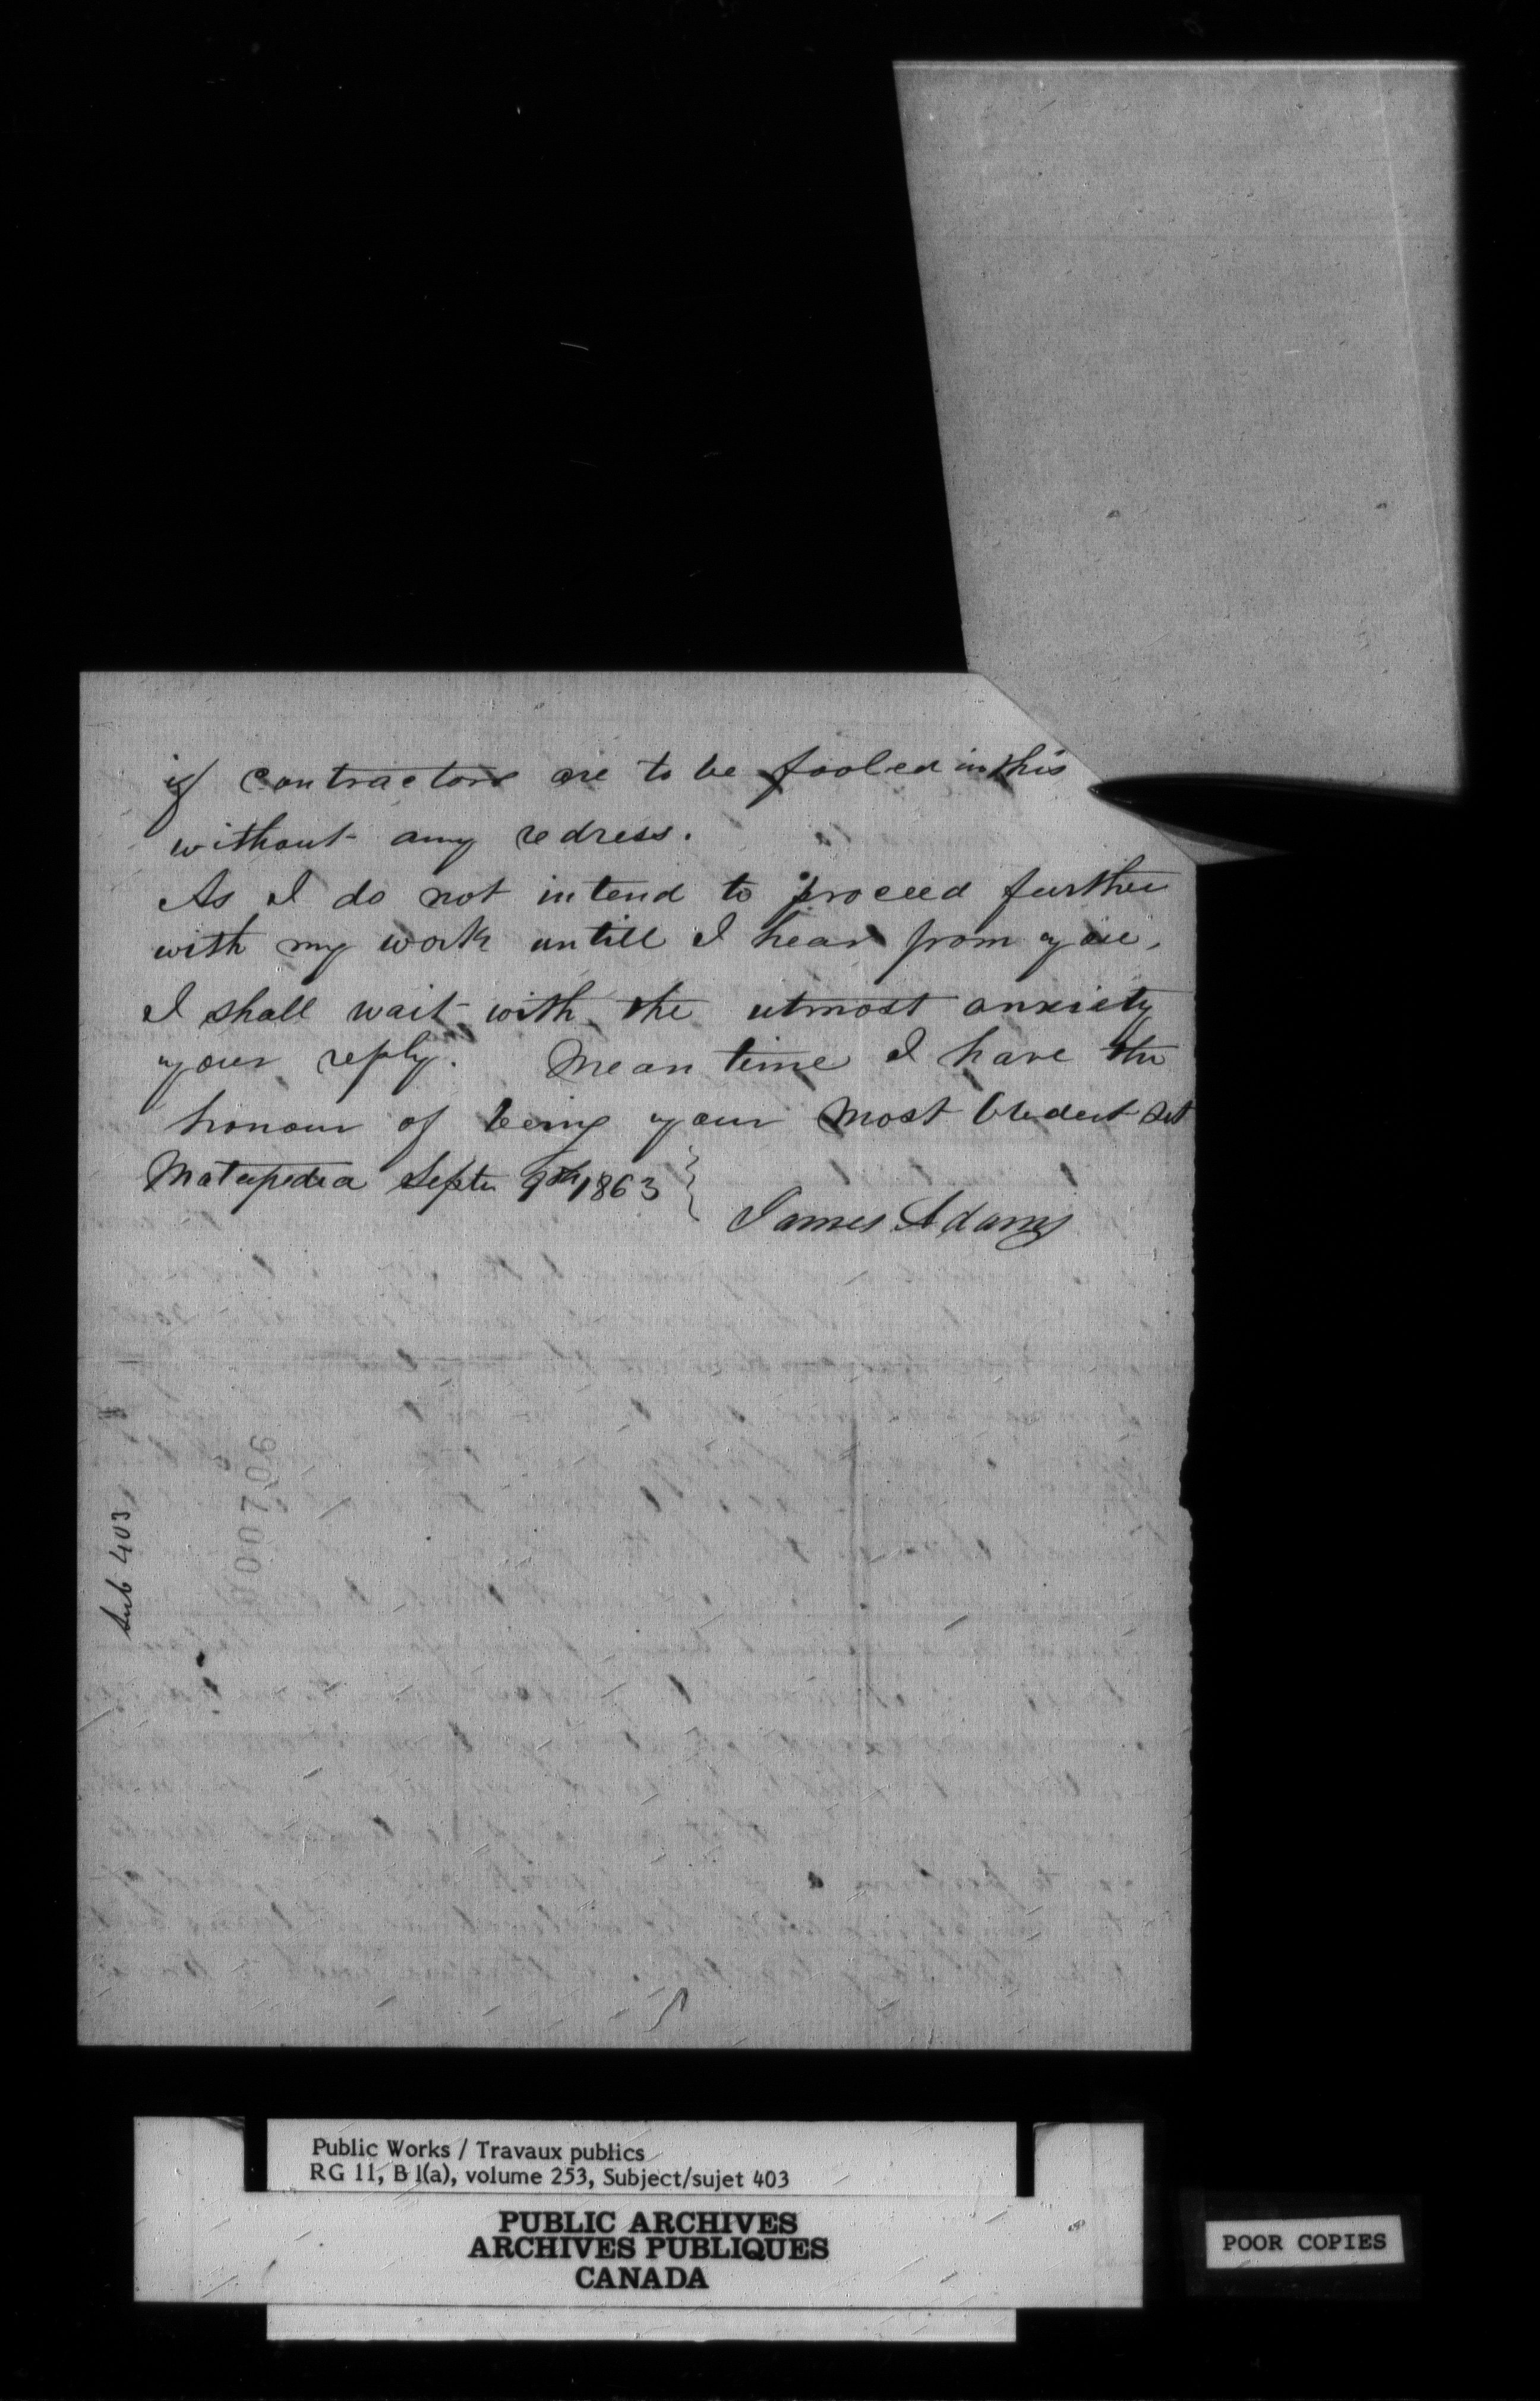 if contractors are to be fooled in this
without any redress.
As I do not intend to proceed further
with my work untill I hear from you,
I shall wait with the utmost anxiety
your reply. Mean time I have the
honour of being your most Obedeut Sert
Matapedia Septr 9th 1863
James Adams
Sub 403
000706
Public Works / Travaux publics
RG 11, B 1(a), volume 253, Subject/sujet 403
PUBLIC ARCHIVES
ARCHIVES PUBLIQUES
CANADA
POOR COPIES